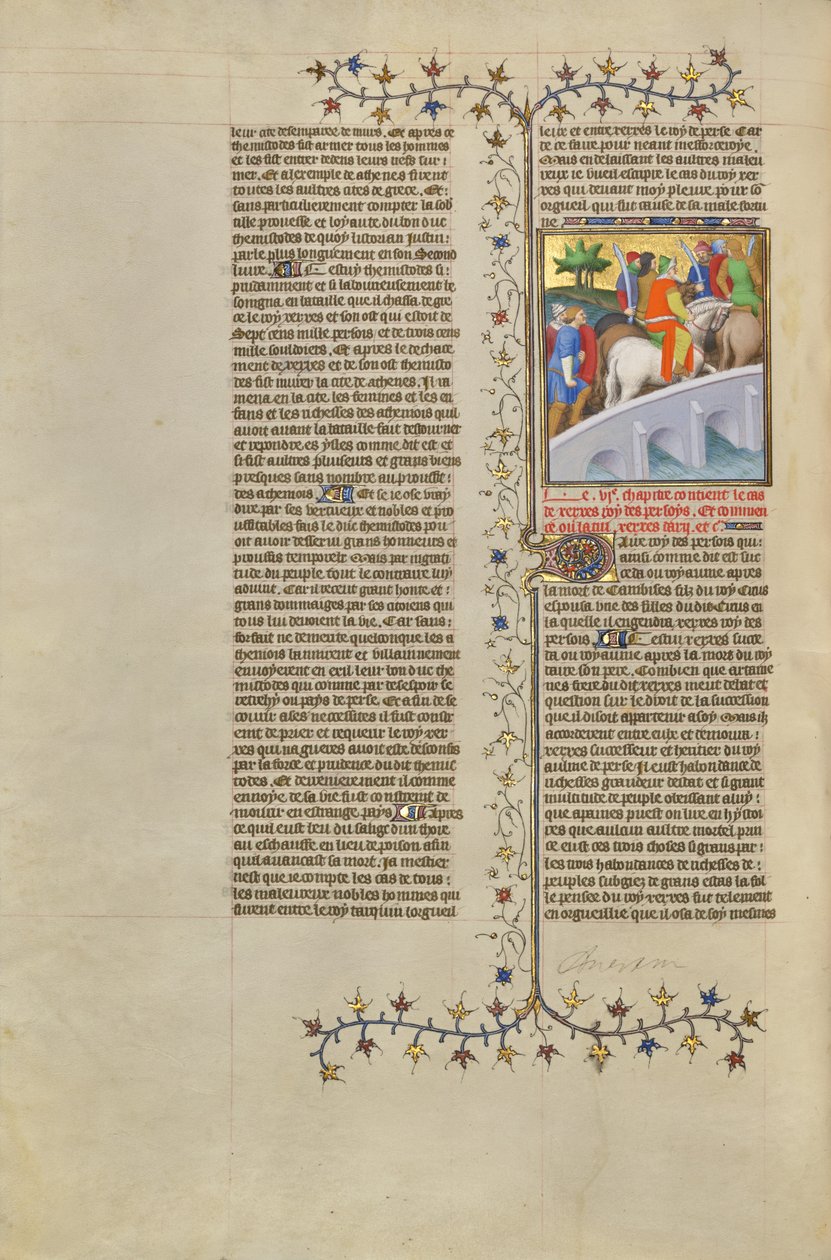 leur cite desemparee de murs. Et apres ce
themistodes fist armer tous les hommes
et les fist entrer dedens leurs nefs sur :
mer. Et a lexemple de athenes firent
toutes les aultres cites de grece. Et :
sans particulierement compter la sob
tille prouesse et loyaute du bon duc
themistodes de quoy listorian Justin :
parle plus longuement en son Second
livre. Cestuy themistodes si :
prudamment et si laboureusement se
songna en bataille que il chassa de gre
ce le roy xerxes et son ost qui estoit de
Sept cens mille persois et de trois cens
mille souldoiers. Et apres le dechace
ment de xerxes et de son ost themisto
des fist murer la cite de athenes. Il ra
mena en la cite les femmes et les en
fans et les richesses des atheniois quil
avoit avant la bataille fait destourner
et repondre es ysles comme dit est et
si fist aultres pluseurs et grans biens
presques sans nombre au proufit :
des atheniois. Et se ie ose vray
dire par ses vertueux et nobles et pro
ufitables fais le duc themistodes pou
oit avoir desservi grans honneurs et
proufis temporelz Mais par ingrati
tude du peuple tout le contraire luy
advint. Car il receut grant honte et :
grans dommaiges par ses citoiens qui
tous lui devoient la vie. Car sans :
forfait ne demerite quelconque les a
theniois banirent et villainnement
envoyerent en exil leur bon duc the
mistodes qui comme par desespoir se
retrehy ou pays de perse. Et afin de se
courir a ses necessites il fust constr
eint de prier et requerir le roy xer
xes qui nagueres avoit este desconfis
par la force et prudence du dit themis
todes. Et derrenierement il comme
ennoye de sa vie fust constreint de
mourir en estrange pays Apres
ce quil eust beu du sang dun thore
au eschausse en lieu de poison afin
quil avancast sa mort. Ja mestier
nest que ie compte les cas de tous :
les maleureux nobles hommes qui
furent entre le roy tarquin lorgueil
leux et entre xerxes le roy de perse Car
de ce faire pour neant mefforceroye.
Mais en delaissant les aultres maleu
reux ie vueil escripre le cas du roy xer
xes qui devant moy pleure pour so
orgueil qui fut cause de sa male fortu
ne
Le. vi. chapitre contient le cas
de xerxes roy des persoys. Et commen
ce ou latin xerxes dary. et c.
Daire roy des persois qui :
ainsi comme dit est suc
ceda ou royaume apres
la mort de Cambises filz du roy Cirus
espousa une des filles du dit Cirus en
la quelle il engendra xerxes roy des
persois Cestui xerxes succe
da ou royaume apres la mort du roy
daire son pere. Combien que artame
nes frere du dit xerxes meut debat et
question sur le droit de la succession
que il disoit appartenir a soy Mais ilz
accorderent entre eulx et demoura :
xerxes successeur et heritier du roy
aulme de perse Il eust habondance de
richesses grandeur destat et si grant
multitude de peuple obeissant a luy :
que apaines puest on lire en hystoi
res que aulcun aultre mortel prin
ce eust ces trois choses si grans par :
les trois habondances de richesses de :
peuples subgiez de grans estas la fol
le pensee du roy xerxes fut telement
enorgueillie que il osa de soy mesmes